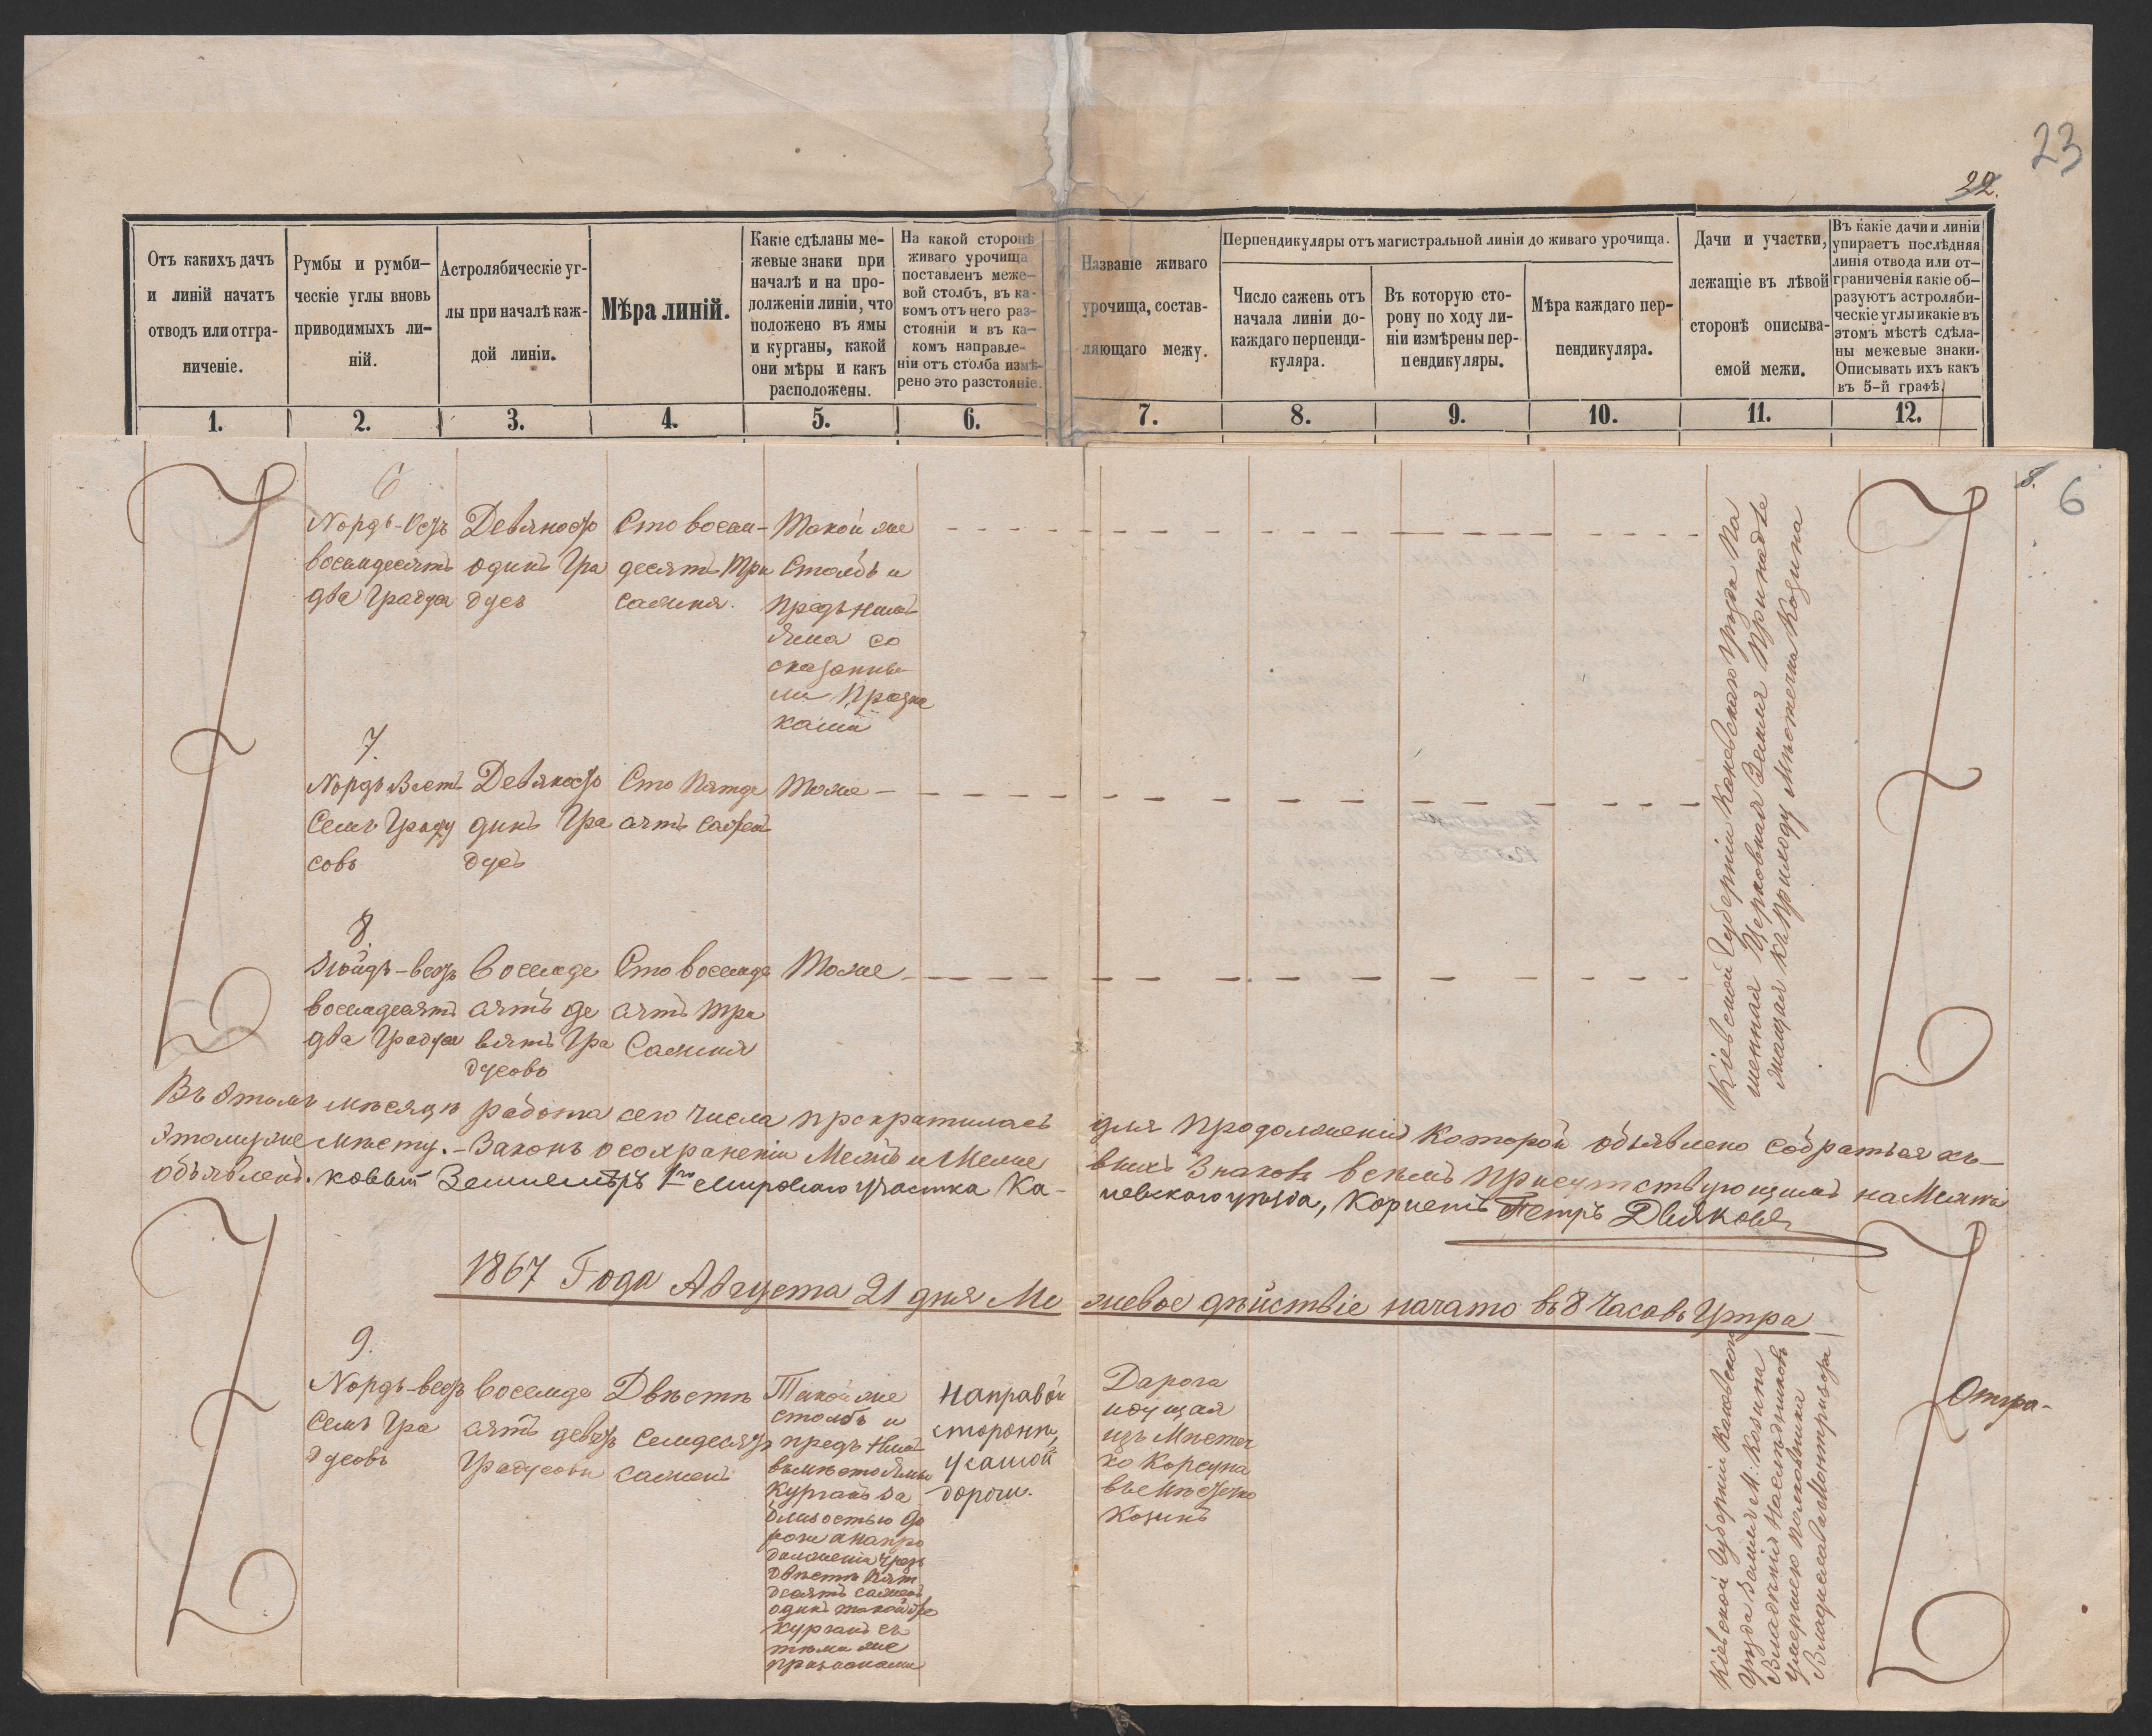 23
22.
Отъ какихъ дачъ
и линій начатъ
отводъ или отгра-
ниченіе.
Румбы и румби-
ческіе углы вновь
приводимыхъ ли-
ній.
Астролябическіе уг-
лы при началѣ каж-
дой линіи.
Мѣра линій.
Какіе сдѣланы ме-
жевые знаки при
началѣ и на про-
долженіи линіи, что
положено въ ямы
и курганы, какой
они мѣры и какъ
расположены.
На какой сторонѣ
живаго урочища
поставленъ меже-
вой столбъ, въ ка-
комъ отъ него раз-
стояніи и въ ка-
комъ направле-
ніи отъ столба измѣ-
рено это разстояніе.
Названіе живаго
урочища, состав-
ляющаго межу.
Перпендикуляры отъ магистральной линіи до живаго урочища.
Число сажень отъ
начала линіи до-
каждаго перпенди-
куляра.
Въ которую сто-
рону по ходу ли-
ніи измѣрены пер-
пендикуляры.
Мѣра каждаго пер-
пендикуляра.
Дачи и участки,
лежащіе въ лѣвой
сторонѣ описыва-
емой межи.
Въ какіе дачи и линіи
упираетъ послѣдняя
линія отвода или от-
граниченія какіе об-
разуютъ астроляби-
ческіе углы и какіе въ
этомъ мѣстѣ сдѣла-
ны межевые знаки.
Описывать ихъ какъ
въ 5-й графѣ.
1. 2. 3. 4. 5. 6. 7. 8. 9. 10. 11. 12.
6
6
Нордъ-Остъ
восемдесятъ
два Градуса
Девяносто
одинъ Гра
дусъ
Сто восем-
десятъ три
сажня.
Такой же
столбъ и
предъ нимъ
яма со
сказанны
ми призна
ками
7.
Нордъ Вестъ
Семь Граду
совъ
Девяносто
динъ Гра
дусъ
Сто Пятде
сятъ сажен
Тоже
8.
Зюйдъ-вестъ
восемдесятъ
два Градуса
Восемде
сятъ де
вять Гра
дусовъ
Сто восемде
сятъ три
Сажня
Тоже
Кіевской Губерніи Каневскаго уезда Па
менная Церковная Земля Принадле
жащая къ приходу Мѣстечка Козина
Въ этомъ мѣсяцѣ работа сего числа прекратилась для продолженія которой объявлено собраться къ
этомуже мѣсту. - Законъ о сохраненіи Межъ и Меже
выхъ Знаковъ всѣмъ присутствующимъ на Межѣ
объявленъ. Землемѣръ 1го Мироваго участка Ка-
невскаго уѣзда, Корнетъ Петръ Дьяковъ
1867 Года Августа 21 дня Ме жевое дѣйствіе начато въ 8 Часовъ Утра
9.
Нордъ-вестъ
Семь Гра
дусовъ
Восемде
сятъ девять
Градусовъ
Двѣсти
семдесятъ
сажень
Такой же
столбъ и
предъ нимъ
вмѣсто Ямы
Курганъ за
близостью до
роги а напро
долженіи чрезъ
двѣсти пять
десятъ сажень
одинъ такой же
курганъ съ
тѣми же
признаками
Направой
сторонѣ,
у самой
дороги.
Дарога
идущая
изъ Мѣстеч
ко Корсуна
въ Мѣстечко
Козинъ
Кіевской Губерніи Каневскаго
Уезда Земля М: Козина
Владѣній Наслѣдниковъ
умершаго полковника
Владислава
Отгра-